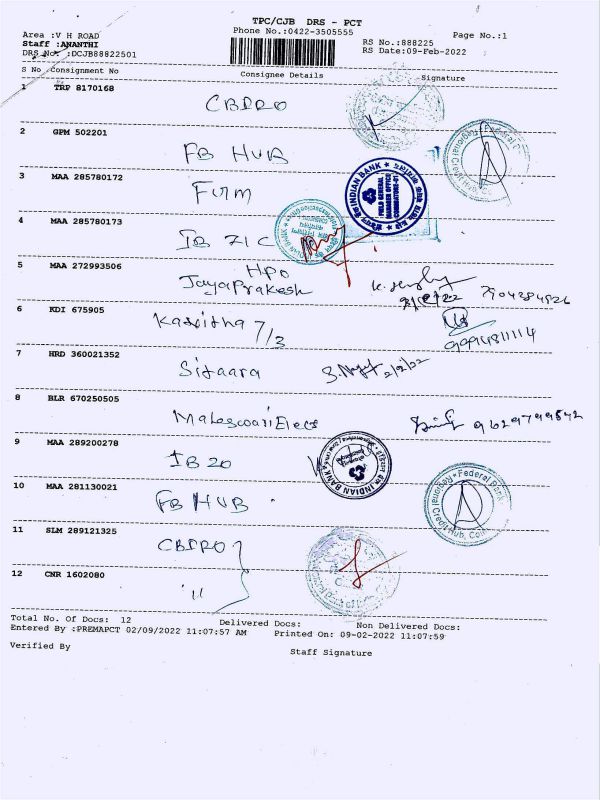 TPC/CJB DRS - PCT
Area :V H ROAD
Phone No.:0422-3505555
Page No.:1
Staff :ANANTHI
RS No.:888225
DRS No. :DCJB88822501
RS Date:09-Feb-2022
S No Consignment No Consignee Details Signature
1 TRP 8170168 CBIRO
2 GPM 502201 FB HUB
3 MAA 285780172 Firm
INDIAN BANK
4 MAA 285780173 IB ZIC
5 MAA 272993506 HPO
JayaPrakesh
6 KDI 675905 Kavitha 7/3
9994811114
7 HRD 360021352 Sitaara
8 BLR 670250505 Maheswari Elect
9629799842
9 MAA 289200278 IB 20
INDIAN BANK
10 MAA 281130021 FB HUB
Federal Bank
11 SLM 289121325 CBIRO
12 CNR 1602080 "
Total No. Of Docs: 12 Delivered Docs: Non Delivered Docs:
Entered By :PREMAPCT 02/09/2022 11:07:57 AM Printed On: 09-02-2022 11:07:59
Verified By Staff Signature